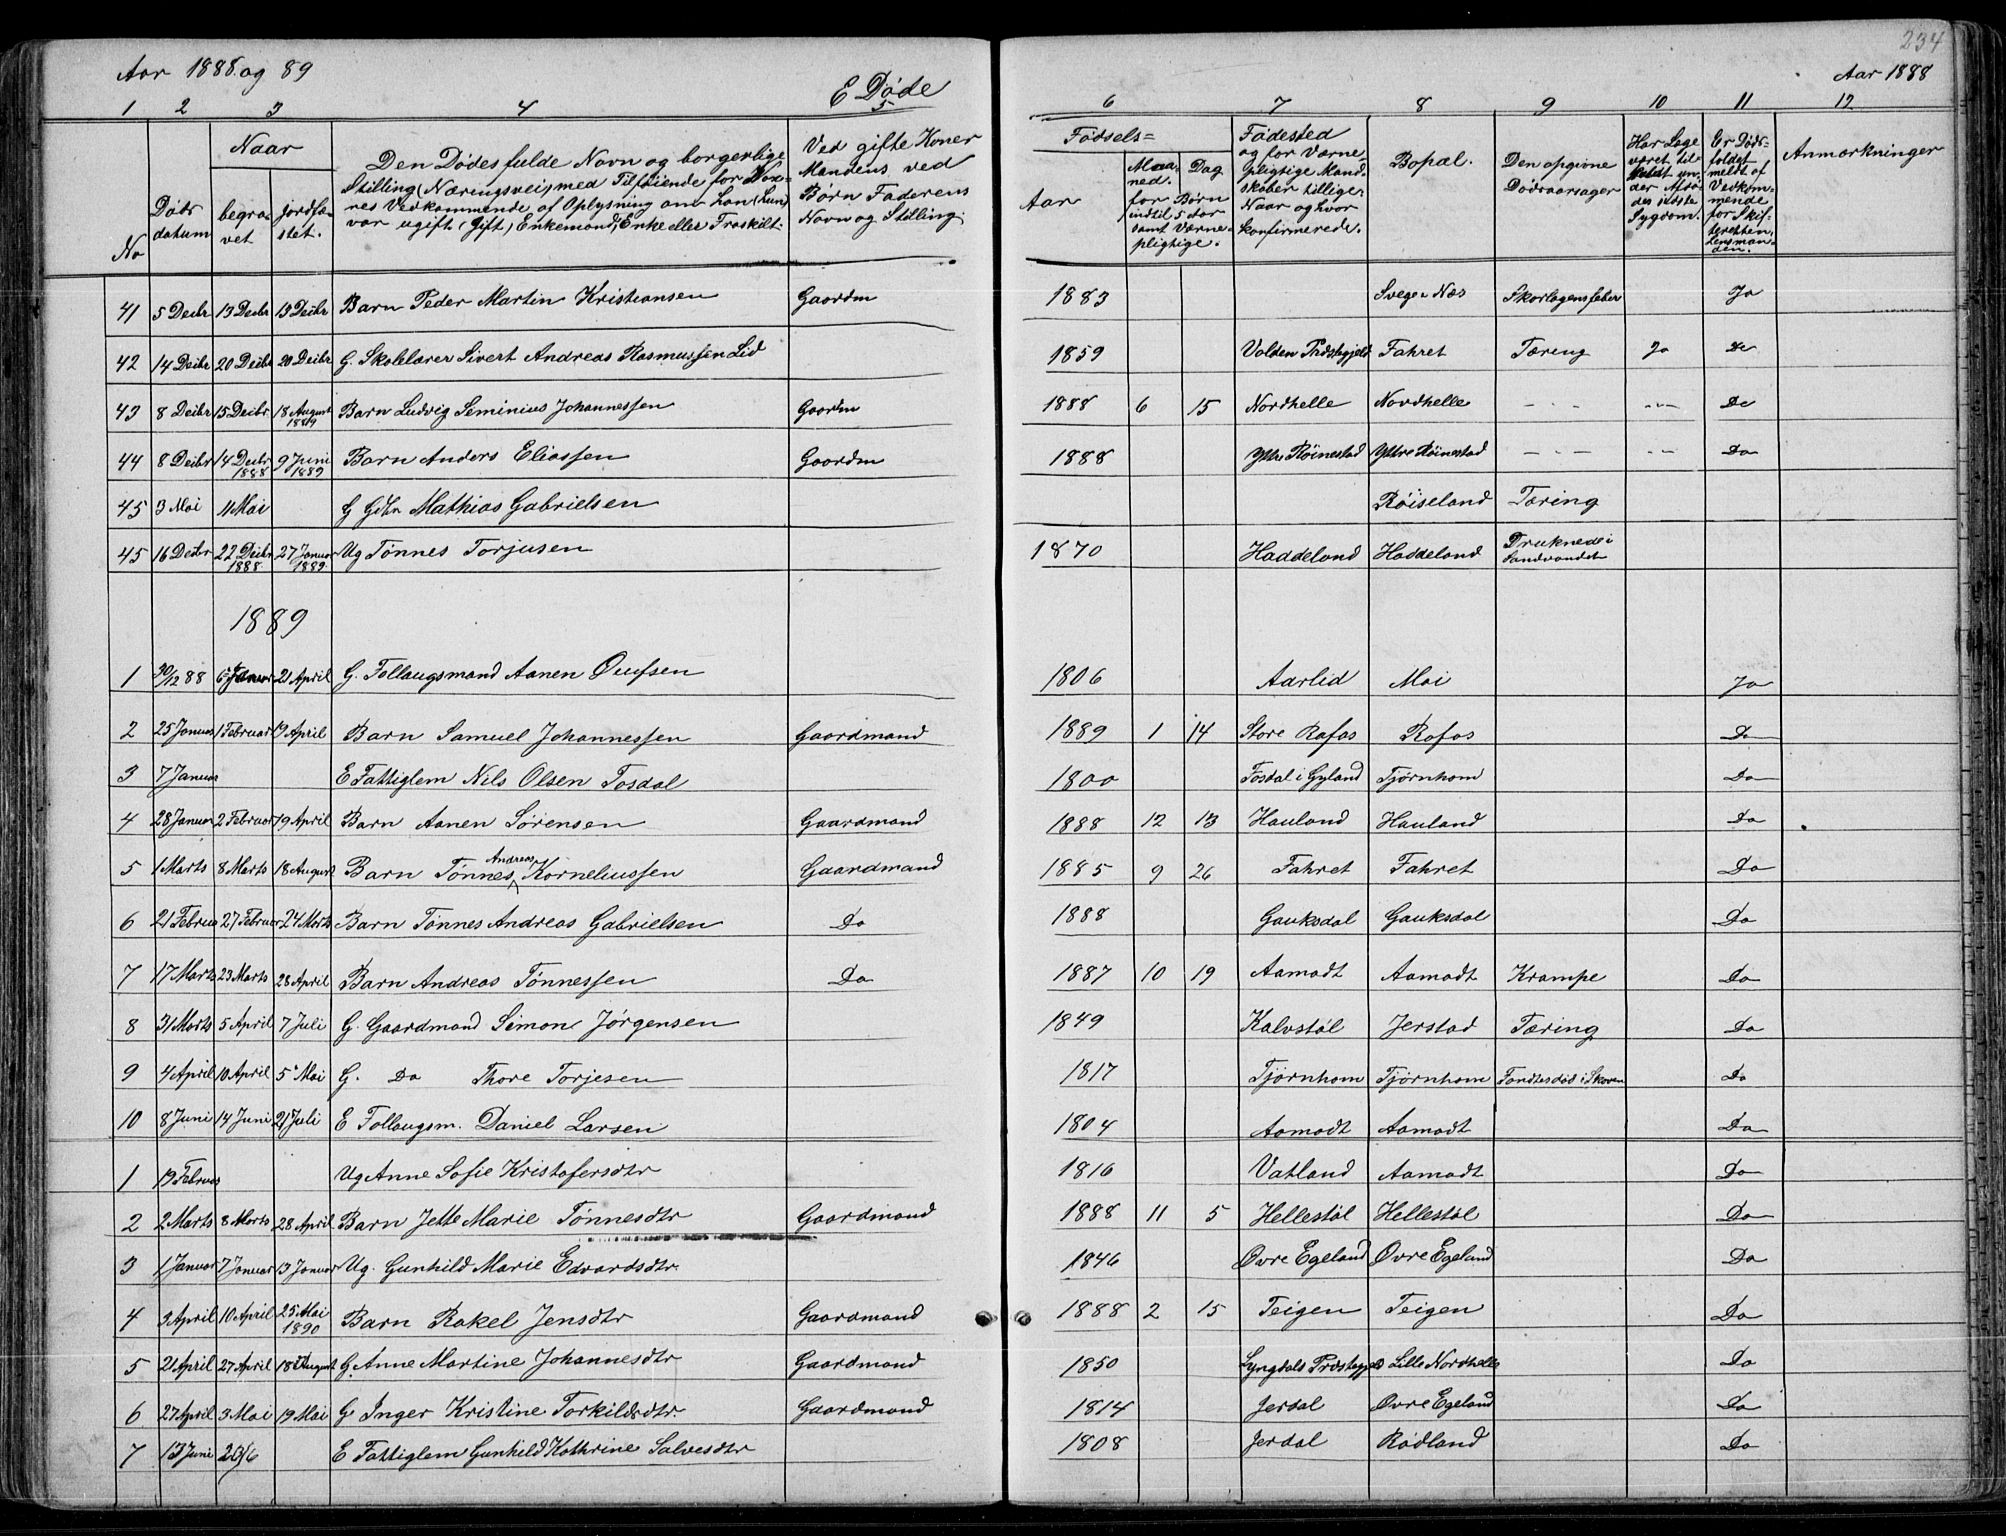 234
Aar 1888 og 89
E Døde
Aar 1888
1 2 3 4 5 6 7 8 9 10 11 12
No
Døds datum
Naar
begravet
jordfæstet.
Den Dødes fulde Navn og borgerlige
Stilling (Næringsvei) med Tilføiende for Vox-
nes Vedkommende af Oplysning om han (hun)
var ugift, (Gift), Enkemand, Enke eller Fraskilt.
Ved gifte Koner
Mandens ved
Børn Faderens
Navn og Stilling.
Fødsels=
Aar
Maaned. Dag
for Børn
indtil 5 Aar
samt Værne-
pligtige.
Fødested
og for Værne-
pligtige Mand-
skaber tillige
Naar og hvor
konfirmerede.
Bopæl.
Den opgivne
Dødsaarsager
Har Læge
været til-
kaldt un-
der Afdø-
des sidste
Sygdom.
Er Døds-
faldet
meldt af
Vedkom-
mende
for Skif-
teretten,
Lensman-
den.
Anmærkninger
41 5 Decbr 13 Decbr 13 Decbr Barn Peder Martin Kristiansen Gaardm 1883 Svege i Næs Skarlagensfeber Ja
42 14 Decbr 20 Decbr 20 Decbr G. Skolelærer Sivert Andreas Rasmussen Lid 1859 Volden Præstegjeld Fahret Tæring Ja Do
43 8 Decbr 15 Decbr 18 August 1889 Barn Ludvig Seminius Johannessen Gaardm 1888 6 15 Nordhelle Nordhelle - - - - - - Do
44 8 Decbr 14 Decbr 1888 9 Juni 1889 Barn Anders Eliassen Gaardm 1888 Yttre Røinestad Yttre Røinestad - - - - - Do
45 3 Mai 11 Mai G Gdbr Mathias Gabrielsen Røiseland Tæring
45 16 Decbr 22 Decbr 1888 27 Januar 1889 Ug Tønnes Torjusen 1870 Haddeland Haddeland Druknede i Sandvandet
1889
1 30/12 88 6 Januar 21 April G. Follaugsmand Aanen Oufsen 1806 Aarlid Moi Ja
2 25 Januar 1 Februar 19 April Barn Samuel Johannessen Gaardmand 1889 1 14 Store Rafos Rafos Do
3 7 Januar E Fattiglem Nils Olsen Tosdal 1800 Tosdal i Gyland Tjørnhom Do
4 28 Januar 2 Februar 19 April Barn Aanen Sørensen Gaardmand 1888 12 13 Hauland Hauland Do
5 1 Marts 8 Marts 18 August Barn Tønnes Andreas Korneliussen Gaardmand 1885 9 26 Fahret Fahret Do
6 21 Februar 27 Februar 24 Marts Barn Tønnes Andreas Gabrielsen Do 1888 Gauksdal Gauksdal Do
7 17 Marts 23 Marts 28 April Barn Andreas Tønnessen Do 1887 10 19 Aamodt Aamodt Krampe Do
8 31 Marts 5 April 7 Juli G. Gaardmand Simon Jørgensen 1849 Kalvstøl Jerstad Tæring Do
9 4 April 10 April 5 Mai G. Do Thore Torjesen 1817 Tjørnhom Tjørnhom Fandtes død i Skoven Do
10 8 Juni 14 Juni 21 Juli E Follaugsm. Daniel Larsen 1804 Aamodt Aamodt Do
1 19 Februar Ug Anne Sofie Kristofersdtr 1816 Vatland Aamodt Do
2 2 Marts 8 Marts 28 April Barn Jette Marie Tønnesdtr Gaardmand 1888 11 5 Hellestøl Hellestøl Do
3 1 Januar 7 Januar 13 Januar Ug. Gunhild Marie Edvardsdtr. 1846 Øvre Egeland Øvre Egeland Do
4 3 April 10 April 25 Mai 1890 Barn Rakel Jensdtr Gaardmand 1888 2 15 Teigen Teigen Do
5 21 April 27 April 18 August G. Anne Martine Johannesdtr Gaardmand 1850 Lyngdals Præstegjeld Lille Nordhelle Do
6 27 April 3 Mai 19 Mai G Inger Kristine Torkildsdtr. Gaardmand 1814 Jerdal Øvre Egeland Do
7 13 Juni 20/6 E Fattiglem Gunhild Kathrine Salvesdtr 1808 Jerdal Rødland Do